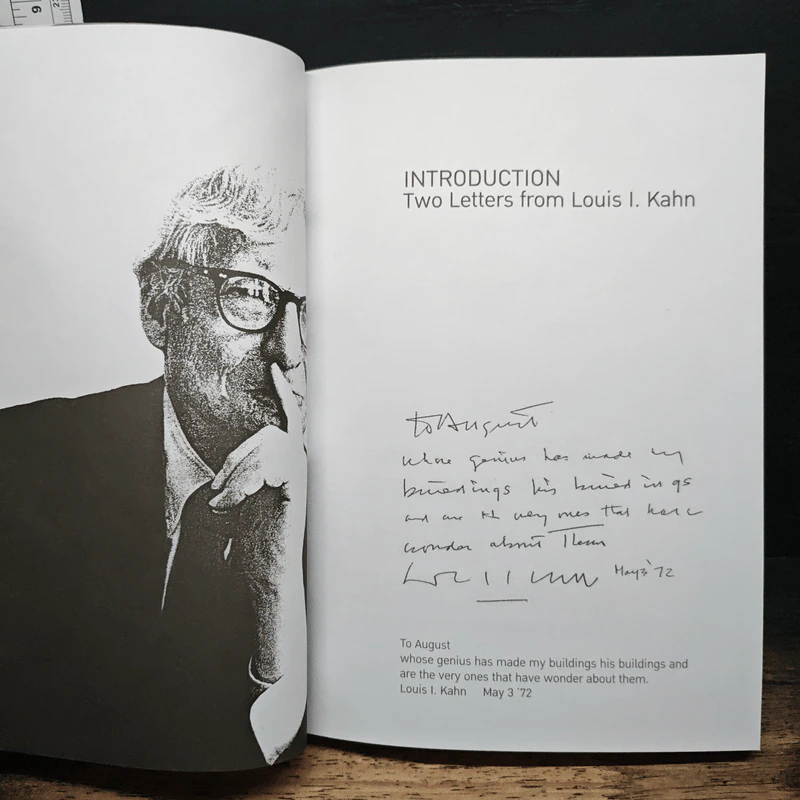 9
INTRODUCTION
Two Letters from Louis I. Kahn
to August
whose genius has made my
buildings his buildings
and are the very ones that have
wonder about them
Louis I Kahn May 3 '72
To August
whose genius has made my buildings his buildings and
are the very ones that have wonder about them.
Louis I. Kahn May 3 '72